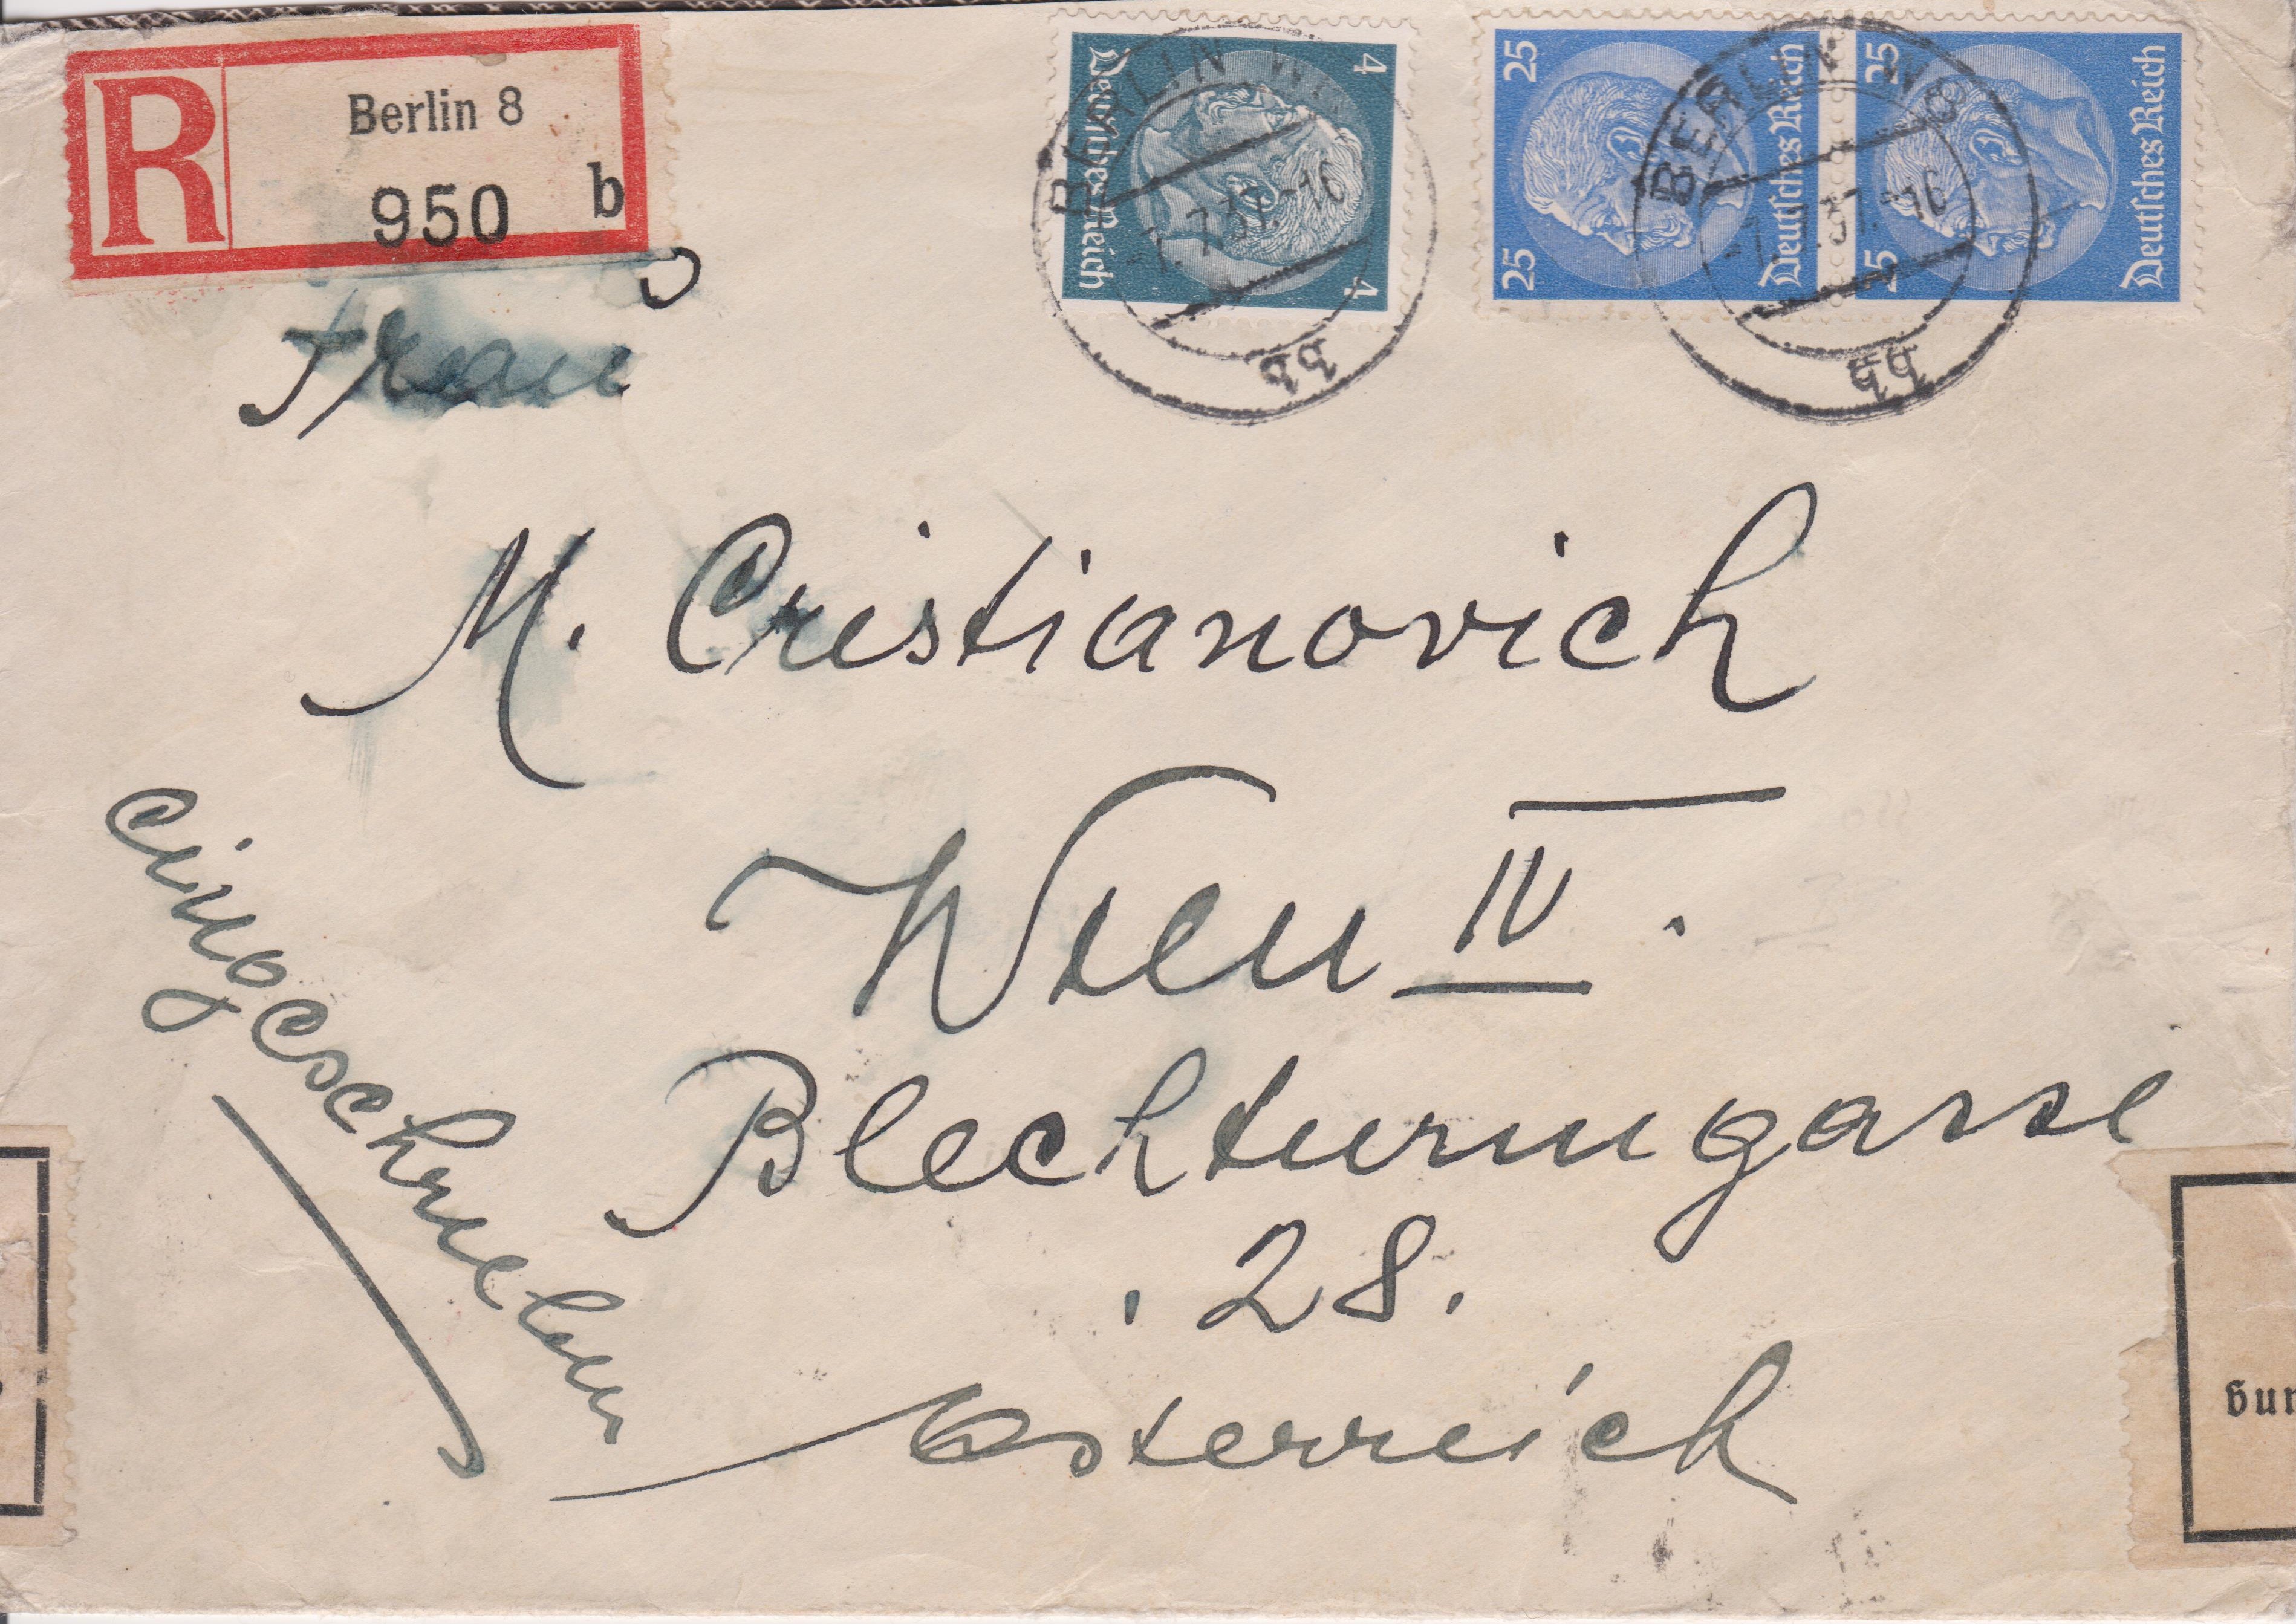 R
Berlin 8
950 b
4
4
Deutsches Reich
25
25
Deutsches Reich
25
25
Deutsches Reich
BERLIN W
7.37.-16
bb
BERLIN W8
7.37.-16
bb
Frau
M. Cristianovich
Wien IV.
Blechturmgasse
28.
Österreich
eingeschrieben